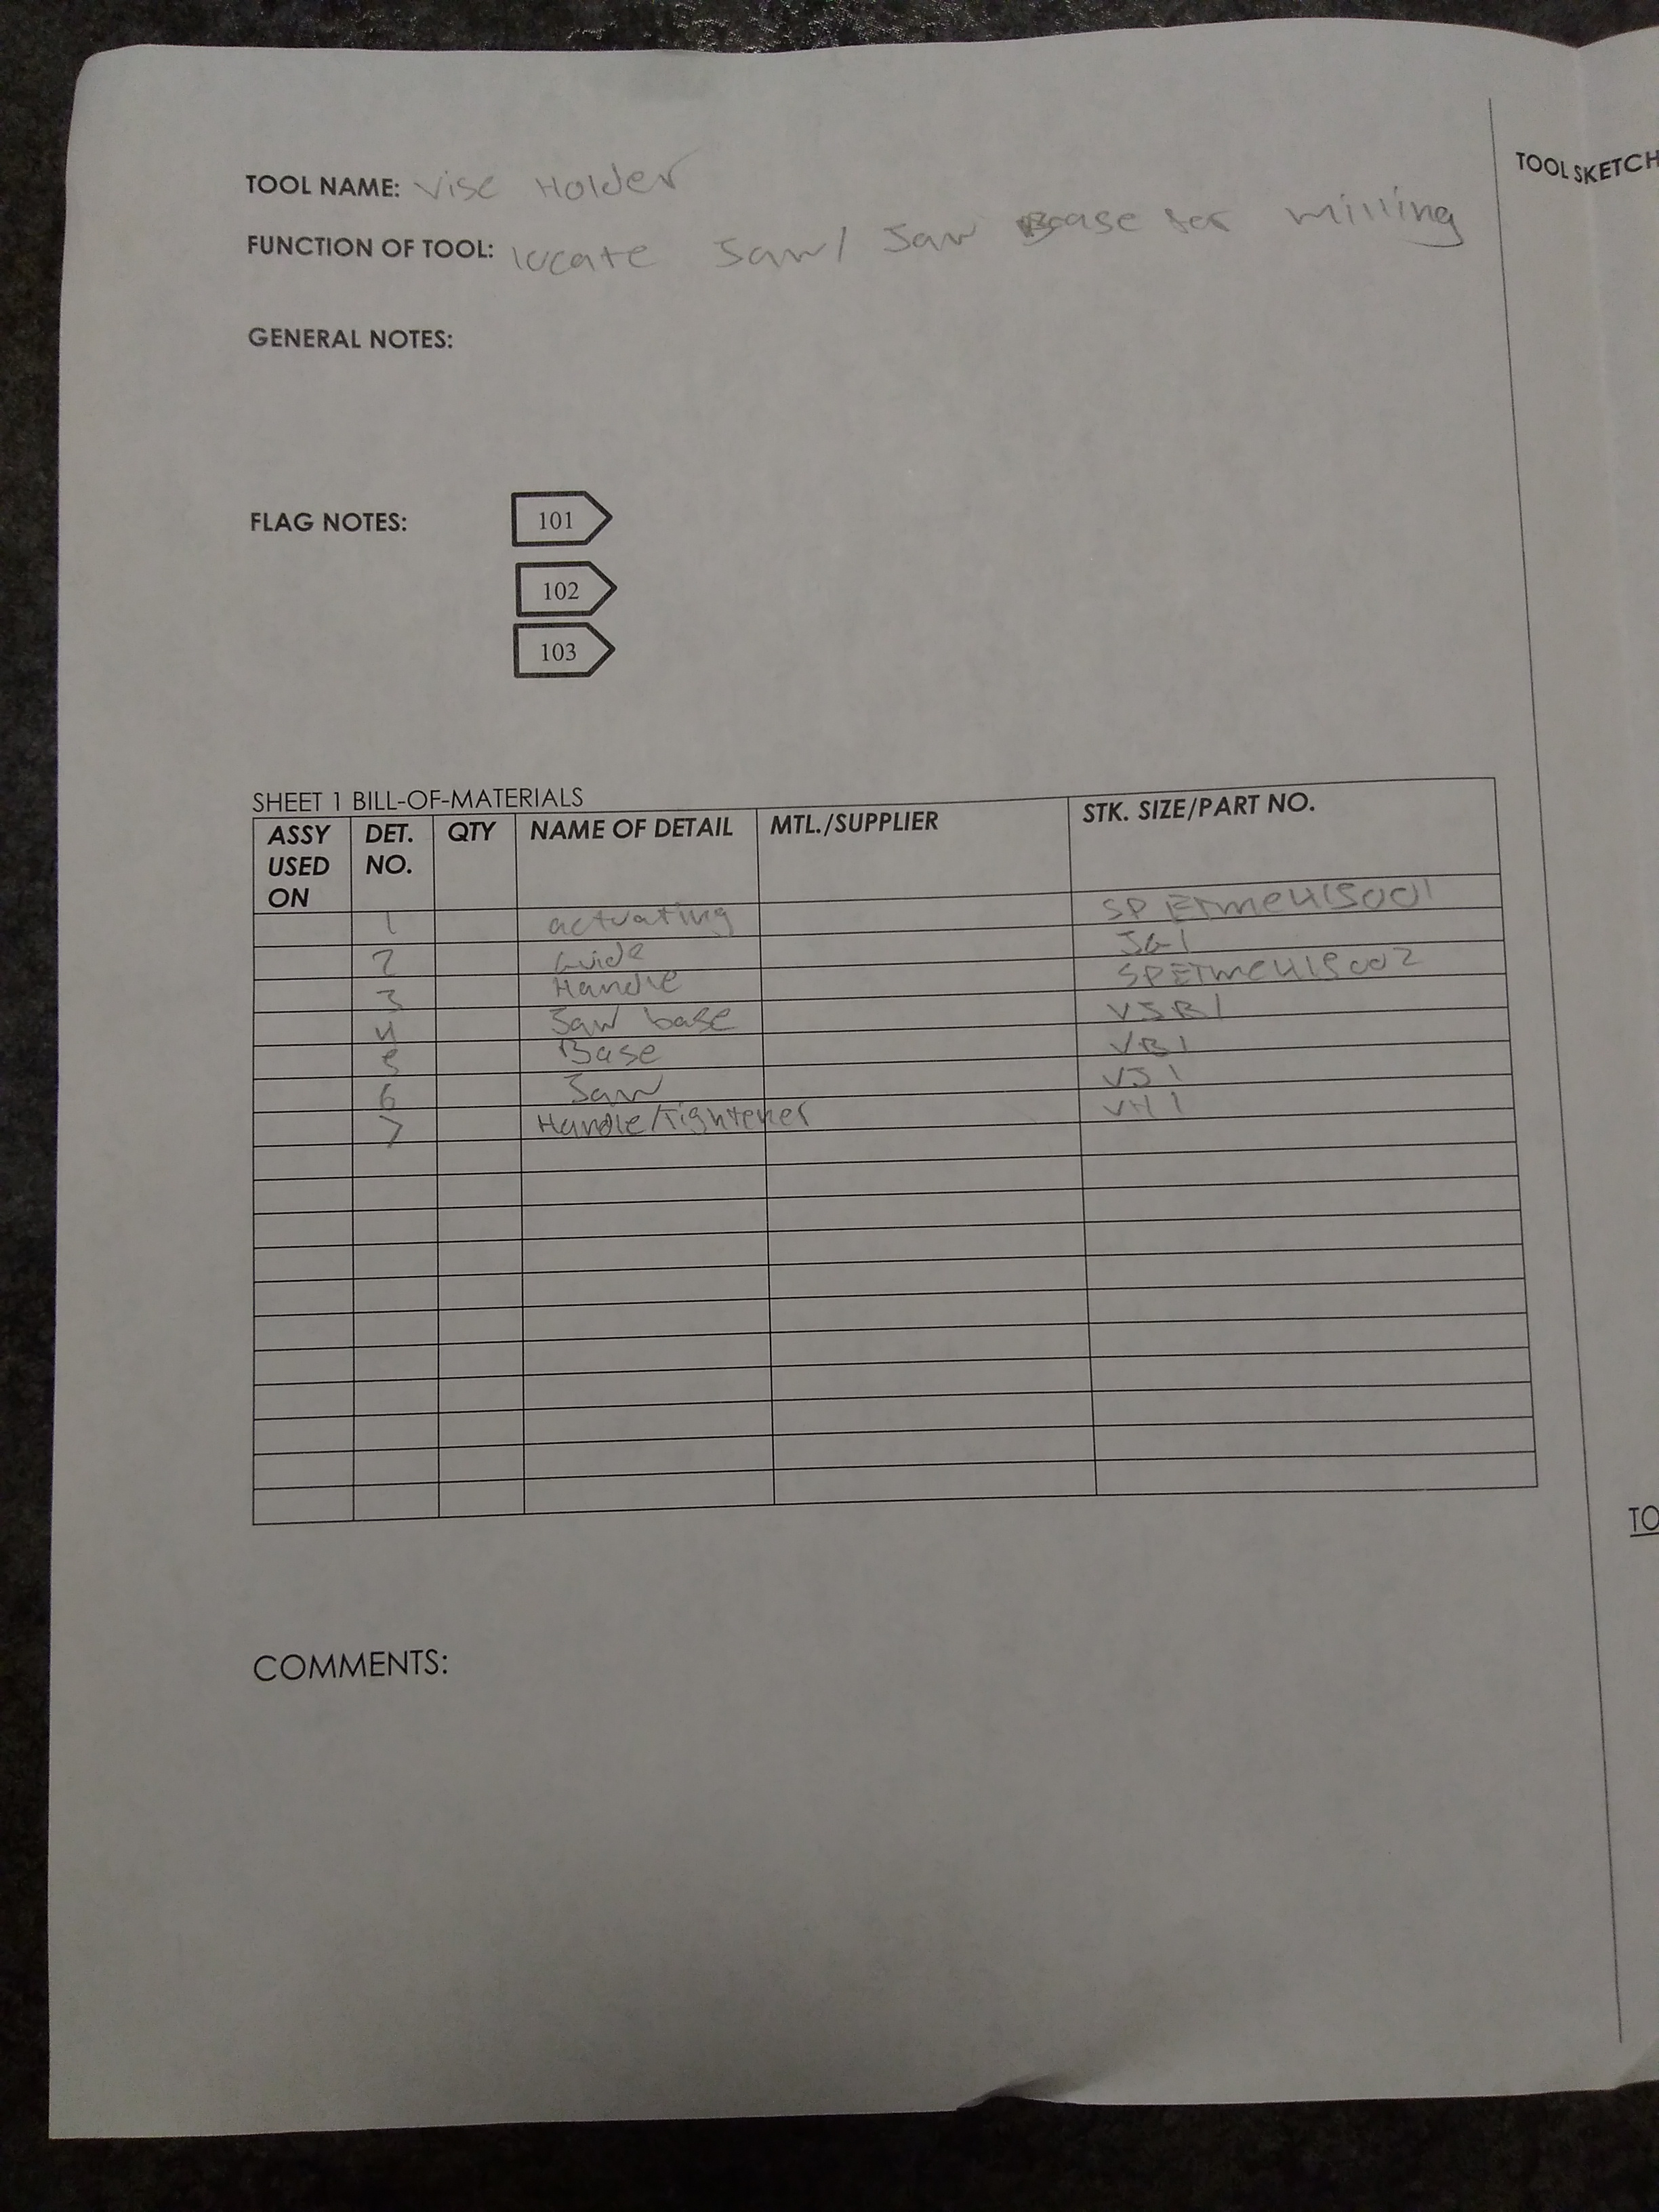 TOOL SKETCH
TOOL NAME: Vise Holder
FUNCTION OF TOOL: locate Jaw/ Jaw Base for milling
GENERAL NOTES:
FLAG NOTES: 101
102
103
SHEET 1 BILL-OF-MATERIALS
ASSY USED ON DET. NO. QTY NAME OF DETAIL MTL./SUPPLIER STK. SIZE/PART NO.
1 actuating
2 Guide JG1
3 Handle
4 Jaw base VJB1
5 Base VB1
6 Jaw VJ1
7 Handle/Tightener VH1
TO
COMMENTS: